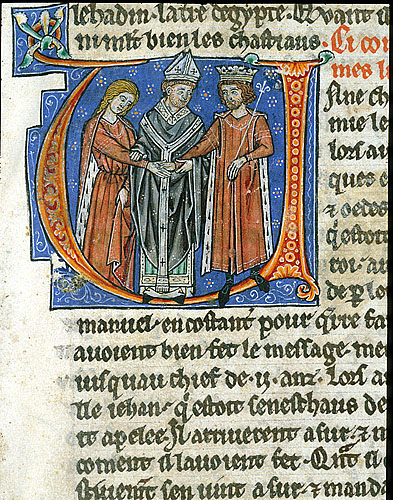 lehadin. la tre degypte. Quant il
ni mist bien les chastiaus. Ci com
mes l
fine ch
mie le
lors au
ques e
⁊ oedes
qestoit
roi. a
de p lo
manuel. en costant pour qrre fa
auoient bien fet le message. me
iusquau chief de .ij. anz. Lors a
lle iehan. qestoit seneschaus de
et apelee. Il arriuerent a sur. ⁊ n
coment il lauoient fet. Qnt il
sen uint a sur. ⁊ manda